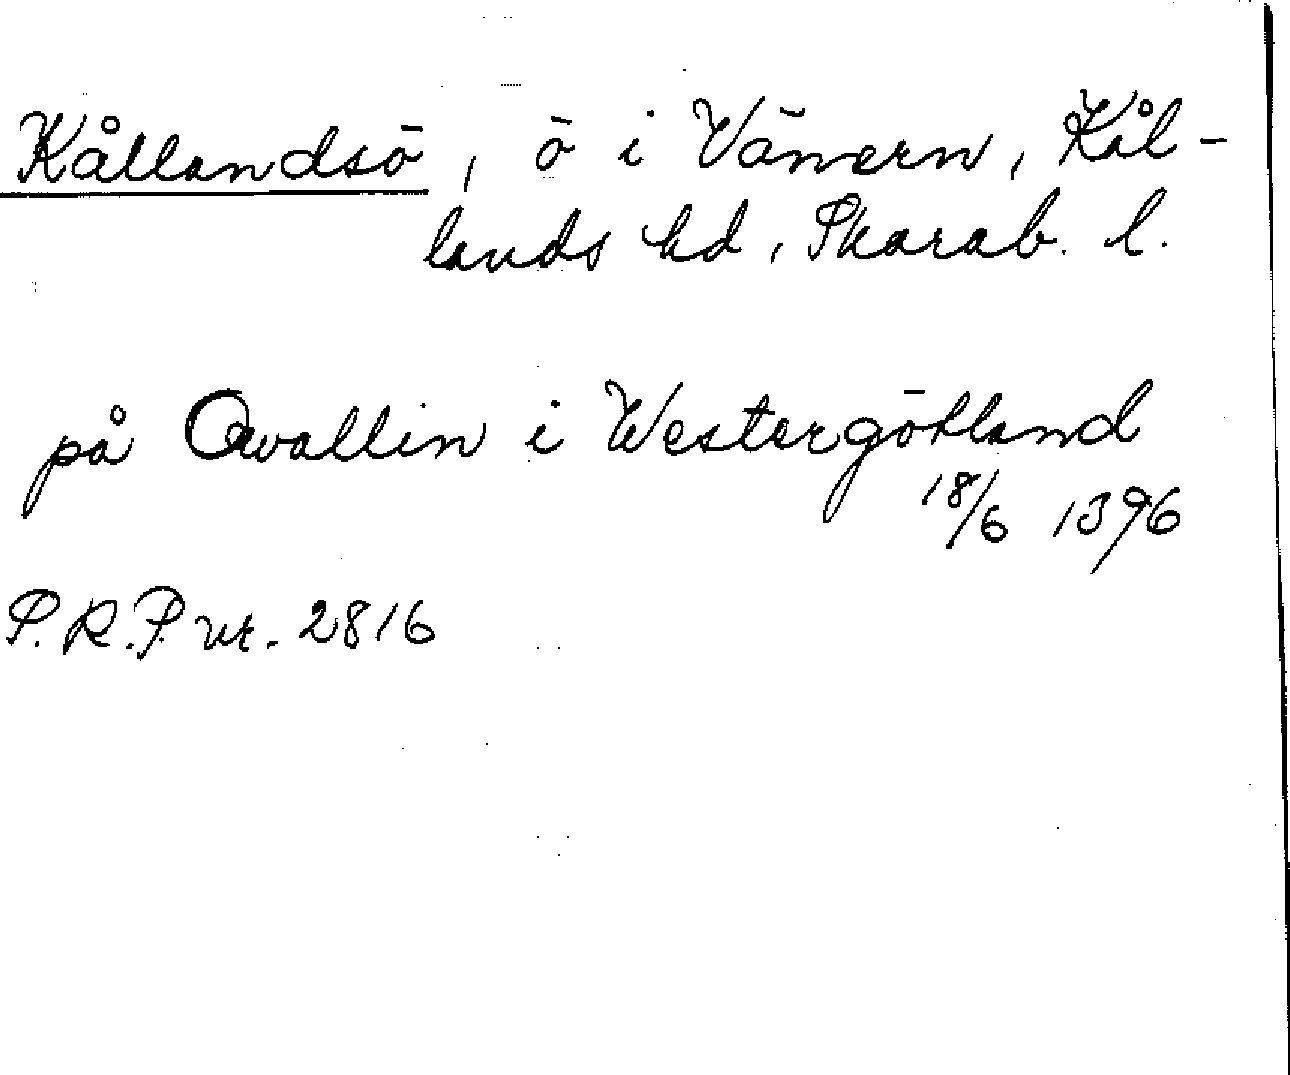 Kållandsö, ö i Vänern, Kål-
lands hd, Skarab. l.
på Qwallin i Westergötland
18/6 1396
P.R.P nr. 2816